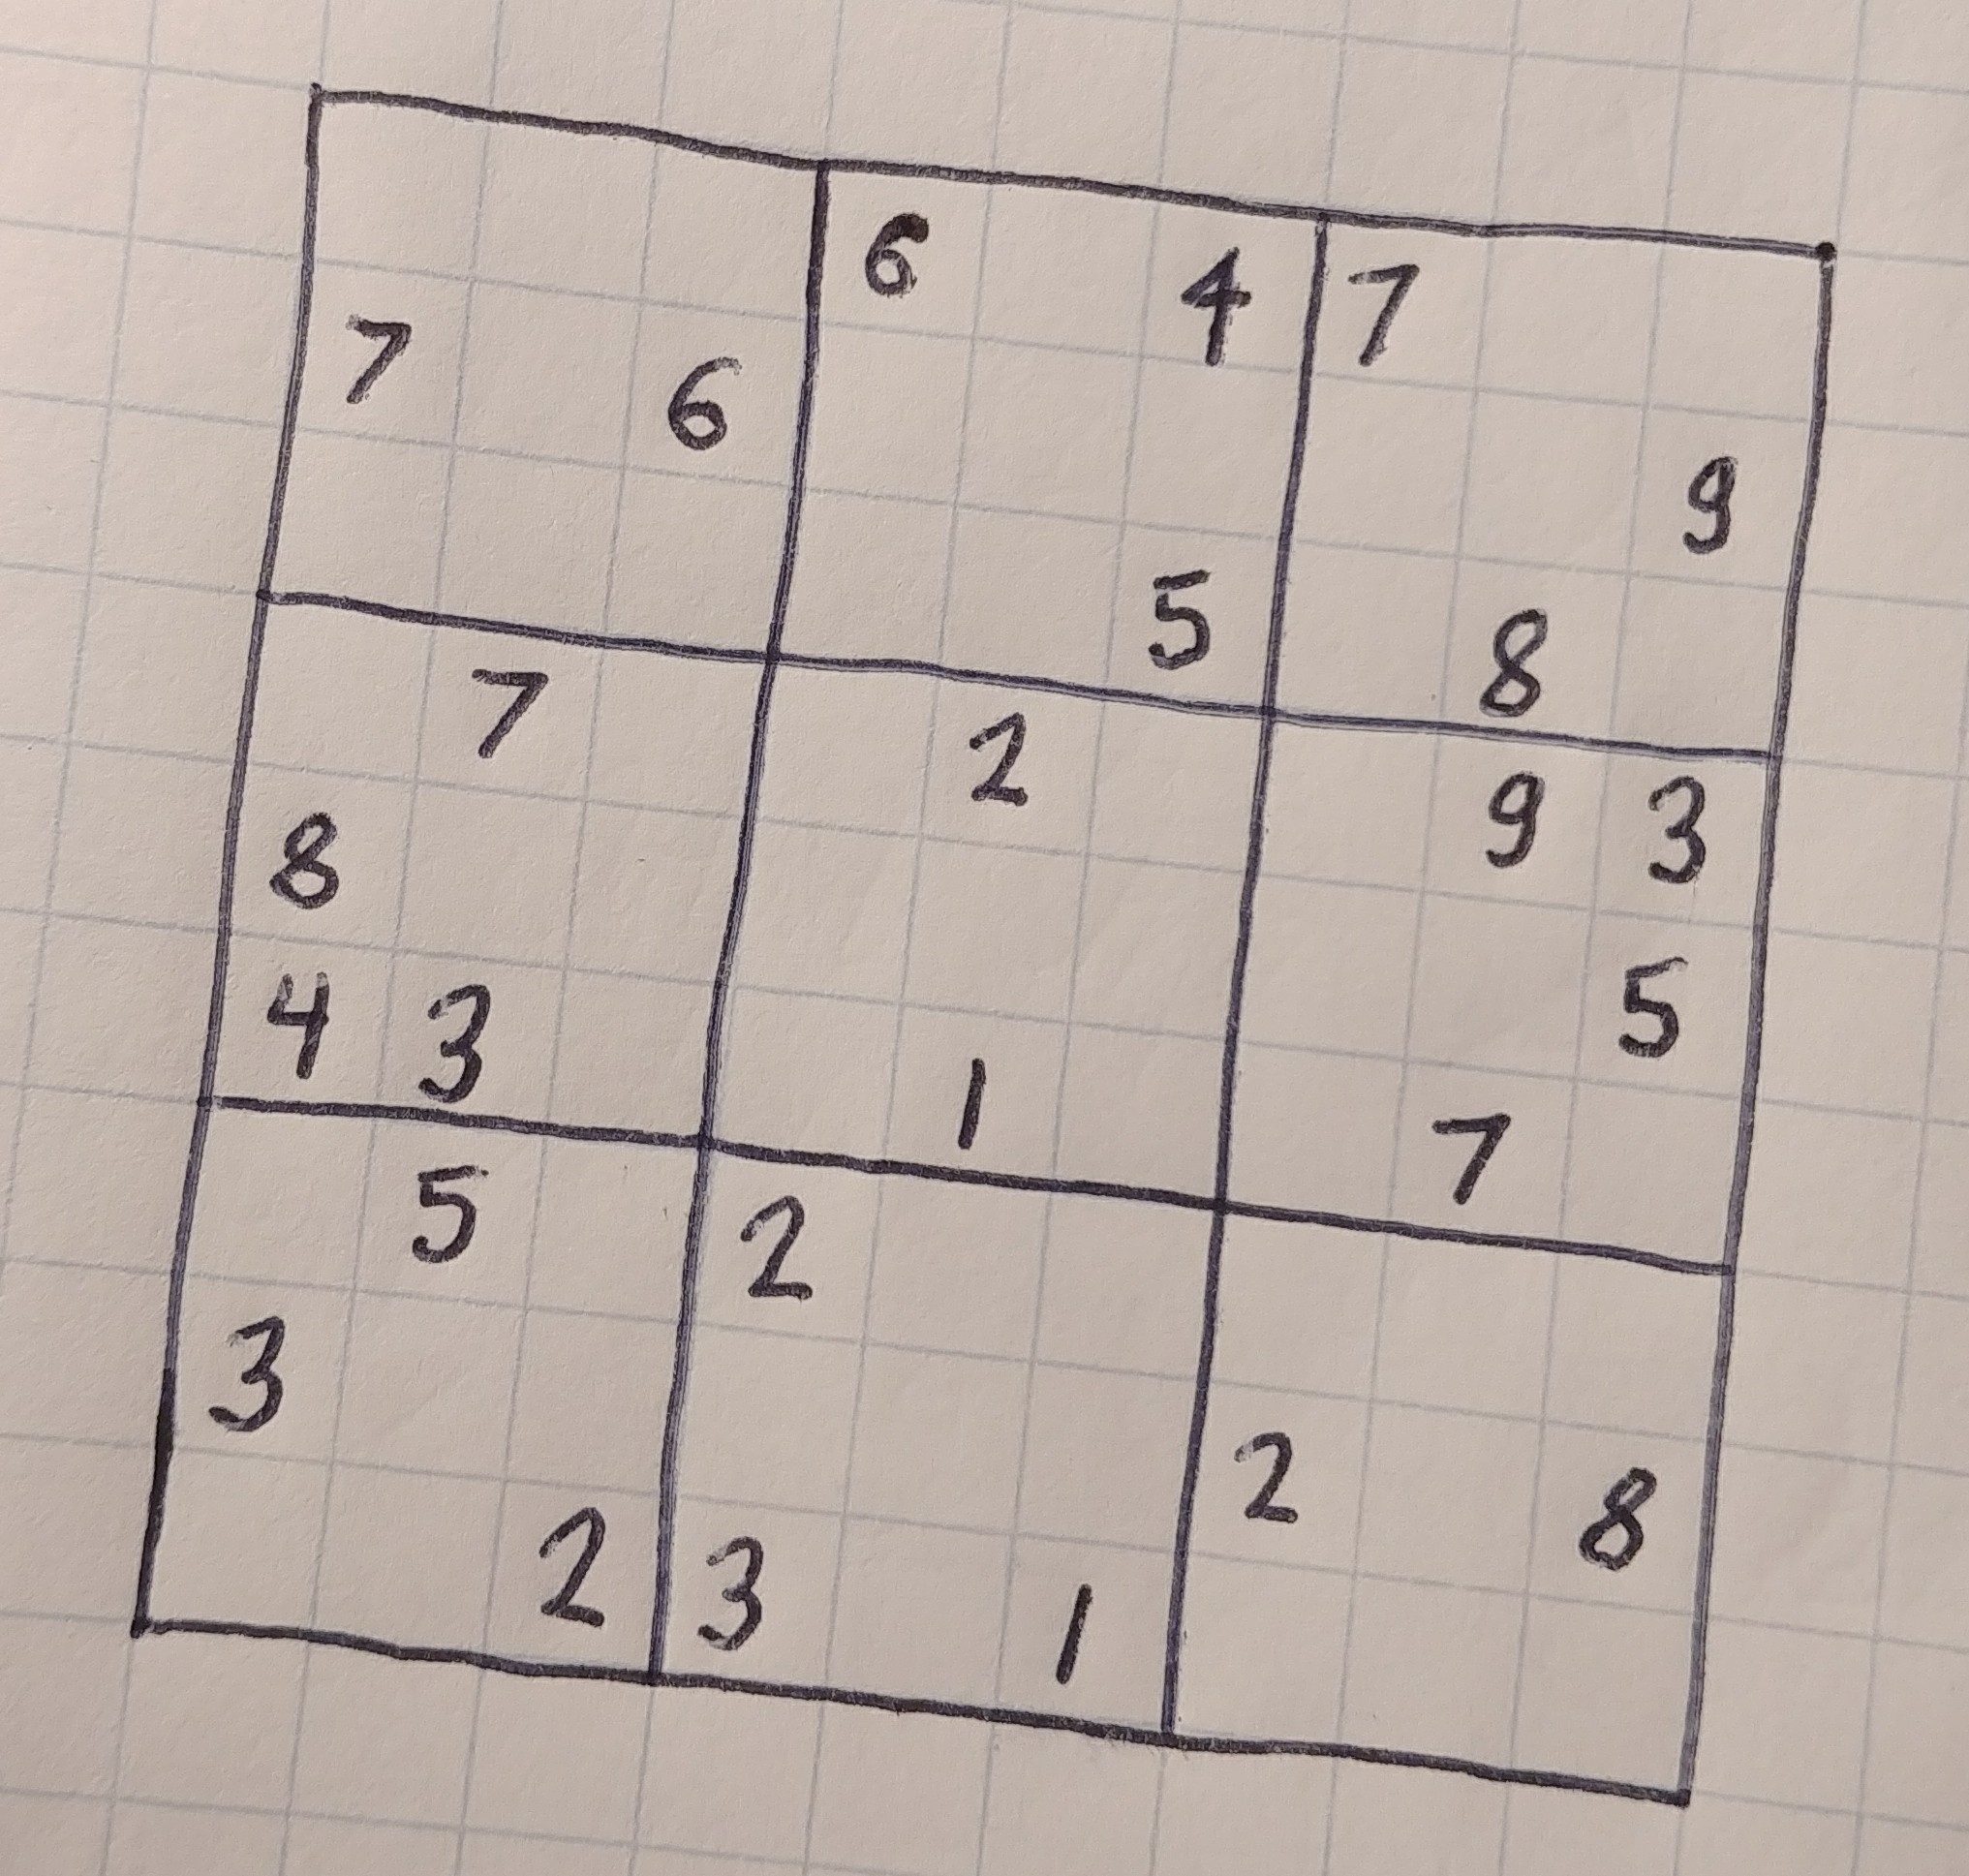 6 4 7
7 6 9
5 8
7 2 9 3
8 5
4 3 1 7
5 2
3 2 8
2 3 1